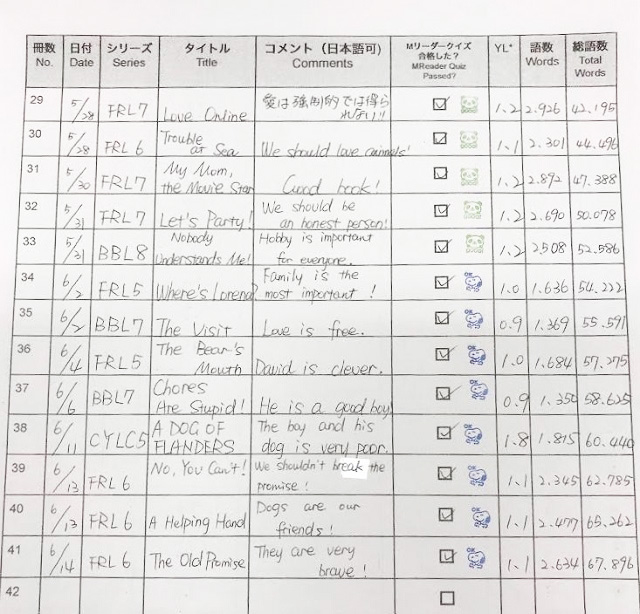 冊数 No. 日付 Date シリーズ Series タイトル Title コメント（日本語可） Comments Mリーダークイズ 合格した? MReader Quiz Passed? YL* 語数 Words 総語数 Total Words
29 5/28 FRL7 Love Online 愛は強制的では得られない!! 1.2 2.926 42.195
30 5/28 FRL6 Trouble at Sea We should love animals! OK 1.1 2.301 44.496
31 5/30 FRL7 My Mom, the Movie Star Good book! 1.2 2.892 47.388
32 5/31 FRL7 Let's Party! We should be an honest person! 1.2 2.690 50.078
33 5/31 BBL8 Nobody Understands Me! Hobby is important for everyone. 1.2 2508 52.586
34 6/2 FRL5 Where's Lorena? Family is the most important! OK 1.0 1.636 54.222
35 6/2 BBL7 The Visit Love is free. OK 0.9 1.369 55.591
36 6/4 FRL5 The Bear's Mouth David is clever. OK 1.0 1.684 57.275
37 6/6 BBL7 Chores Are Stupid! He is a good boy OK 0.9 1.350 58.625
38 6/11 CYLC5 A DOG OF FLANDERS The boy and his dog is very poor. OK 1.8 1.815 60.440
39 6/13 FRL6 No, You Can't! We shouldn't break the promise! OK 1.1 2.345 62.785
40 6/13 FRL6 A Helping Hand Dogs are our friends! OK 1.1 2.477 65.262
41 6/14 FRL6 The Old Promise They are very brave! OK 1.1 2.634 67.896
42